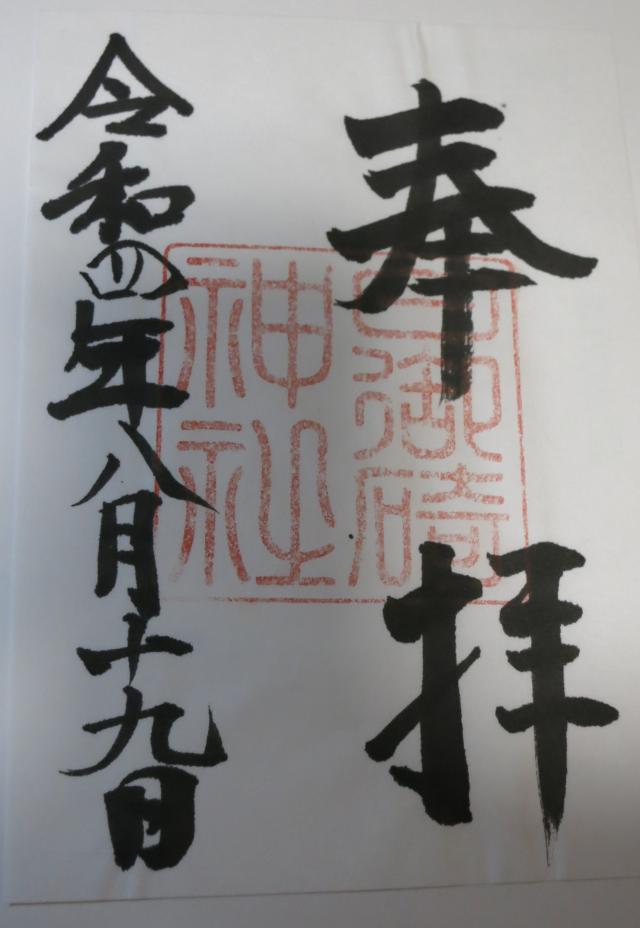 奉拝
日御碕
神社
令和四年八月十九日